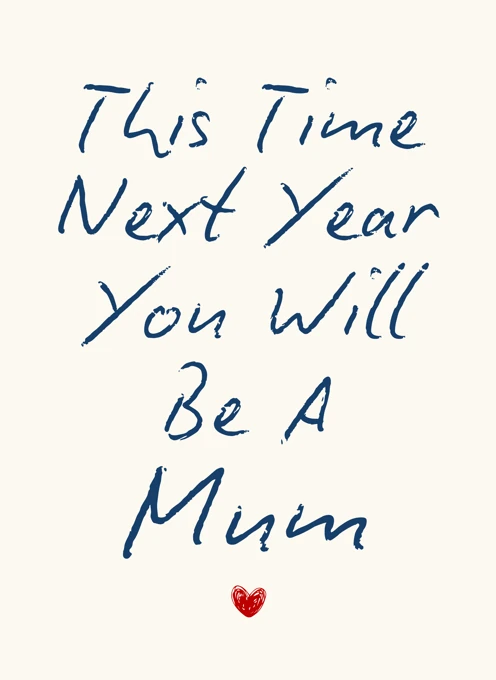 This Time
Next Year
You Will
Be A
Mum